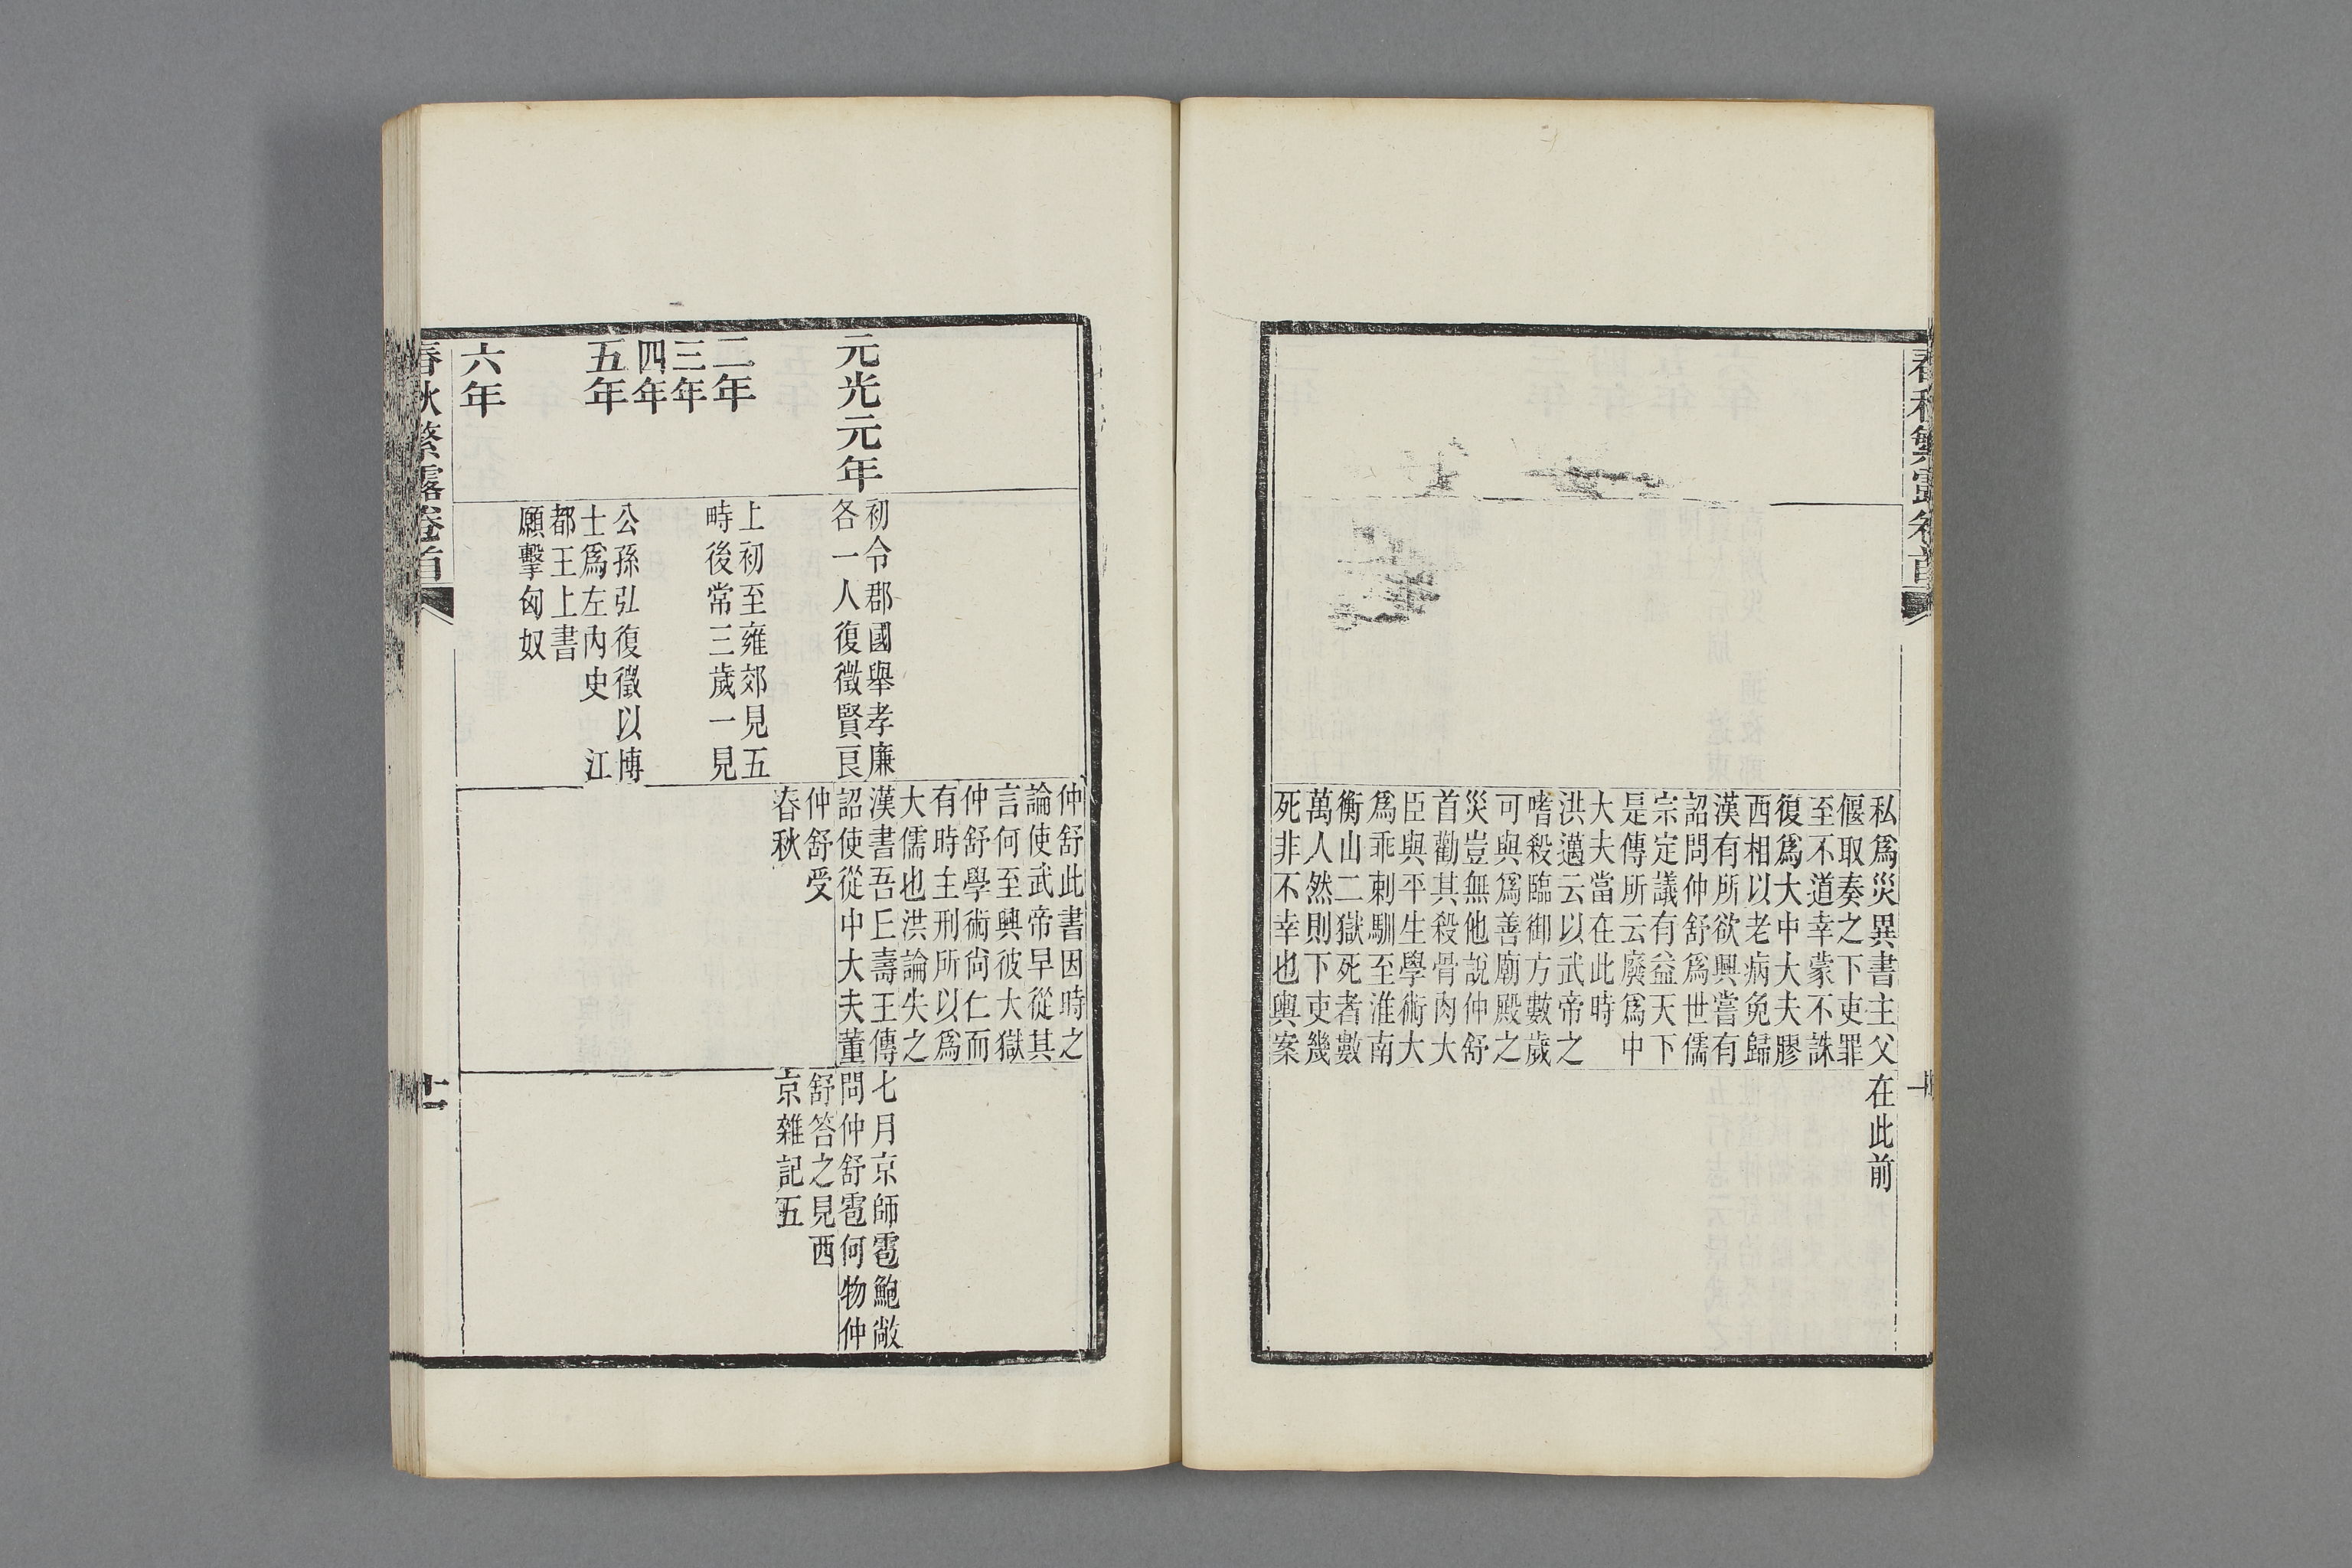 私爲災異書主父
偃取奏之下吏罪
至不道幸蒙不誅
復爲大中大夫膠
西相以老病免歸
漢有所欲興嘗有
詔問仲舒爲世儒
宗定議有益天下
是傳所云廢爲中
大夫當在此時
洪邁云以武帝之
嗜殺臨御方數歲
可與爲善廟殿之
災豈無他說仲舒
首勸其殺骨肉大
臣與平生學術大
爲乖刺馴至淮南
衡山二獄死者數
萬人然則下吏幾
死非不幸也輿案
在此前
仲舒此書因時之
論使武帝早從其
言何至興彼大獄
仲舒學術尙仁而
有時主刑所以爲
大儒也洪論失之
元光元年
初令郡國舉孝廉
各一人復徵賢良
漢書吾丘壽王傳
詔使從中大夫董
仲舒受
春秋
七月京師雹鮑敞
問仲舒雹何物仲
舒答之見西
京雜記五
二年
上初至雍郊見五
時後常三歲一見
三年
四年
五年
公孫弘復徵以博
士爲左內史 江
都王上書
願擊匈奴
六年
春秋繁露卷首
十一